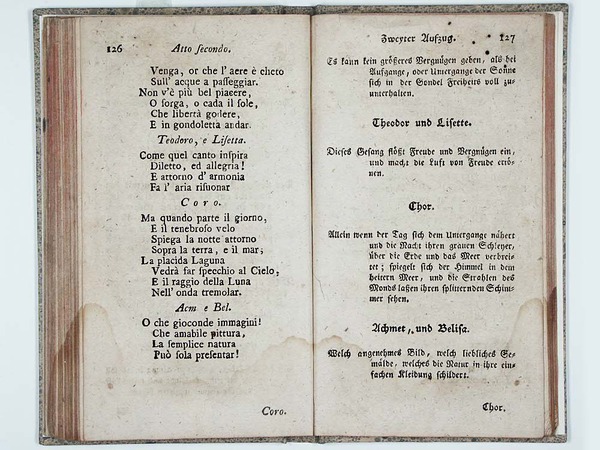 126 Atto secondo.
Venga, or che l' aere è cheto
Sull' acque a paſſeggiar.
Non v'è più bel piacere,
O ſorga, o cada il ſole,
Che libertà godere,
E in gondoletta andar.
Teodoro, e Liſetta.
Come quel canto inſpira
Diletto, ed allegria!
E attorno d' armonia
Fa l' aria riſuonar
Coro.
Ma quando parte il giorno,
E il tenebroſo velo
Spiega la notte attorno
Sopra la terra, e il mar,
La placida Laguna
Vedrà far ſpecchio al Cielo,
E il raggio della Luna
Nell' onda tremolar.
Acm e Bel.
O che gioconde immagini!
Che amabile pittura,
La ſemplice natura
Può ſola preſentar!
Coro.
Zweyter Aufzug. 127
Es kann kein größeres Vergnügen geben, als bei
Aufgange, oder Untergange der Sonne
ſich in der Gondel Freiheits voll zu-
unterhalten.
Theodor und Liſette.
Dieſes Geſang flößt Freude und Vergnügen ein,
und macht die Luft von Freude ertö-
nen.
Chor.
Allein wenn der Tag ſich dem Untergange nähert
und die Nacht ihren grauen Schleyer,
über die Erde und das Meer verbrei-
tet; ſpiegelt ſich der Himmel in dem
heitern Meer, und die Strahlen des
Monds laßen ihren ſplitternden Schim-
mer ſehen.
Achmet, und Beliſa.
Welch angenehmes Bild, welch liebliches Ge-
mälde, welches die Natur in ihre ein-
fachen Kleidung ſchildert.
Chor.